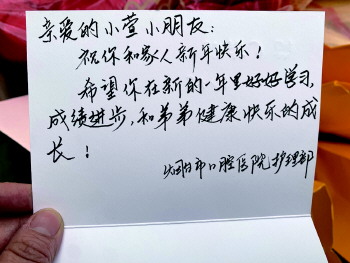 亲爱的小萱小朋友：
祝你和家人新年快乐！
希望你在新的一年里好好学习，
成绩进步，和弟弟健康快乐的成
长！
烟台市口腔医院护理部